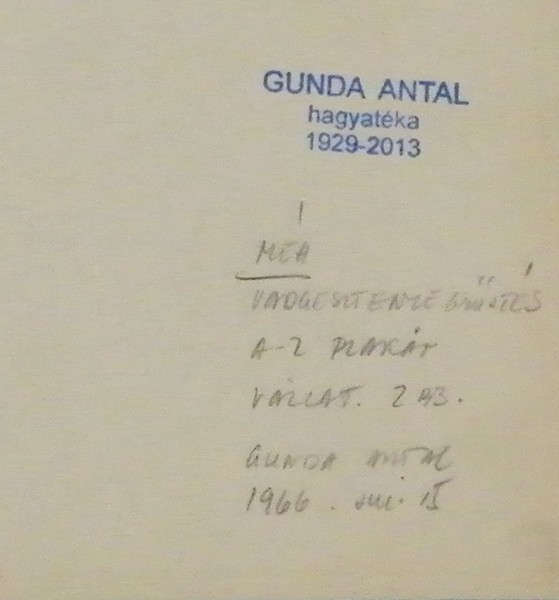 GUNDA ANTAL
hagyatéka
1929-2013
MÉH
VADGESZTENYE GYŰJTÉS
A-2 PLAKÁT
VÁZLAT. 2 DB.
GUNDA ANTAL
1966. JUL. 15